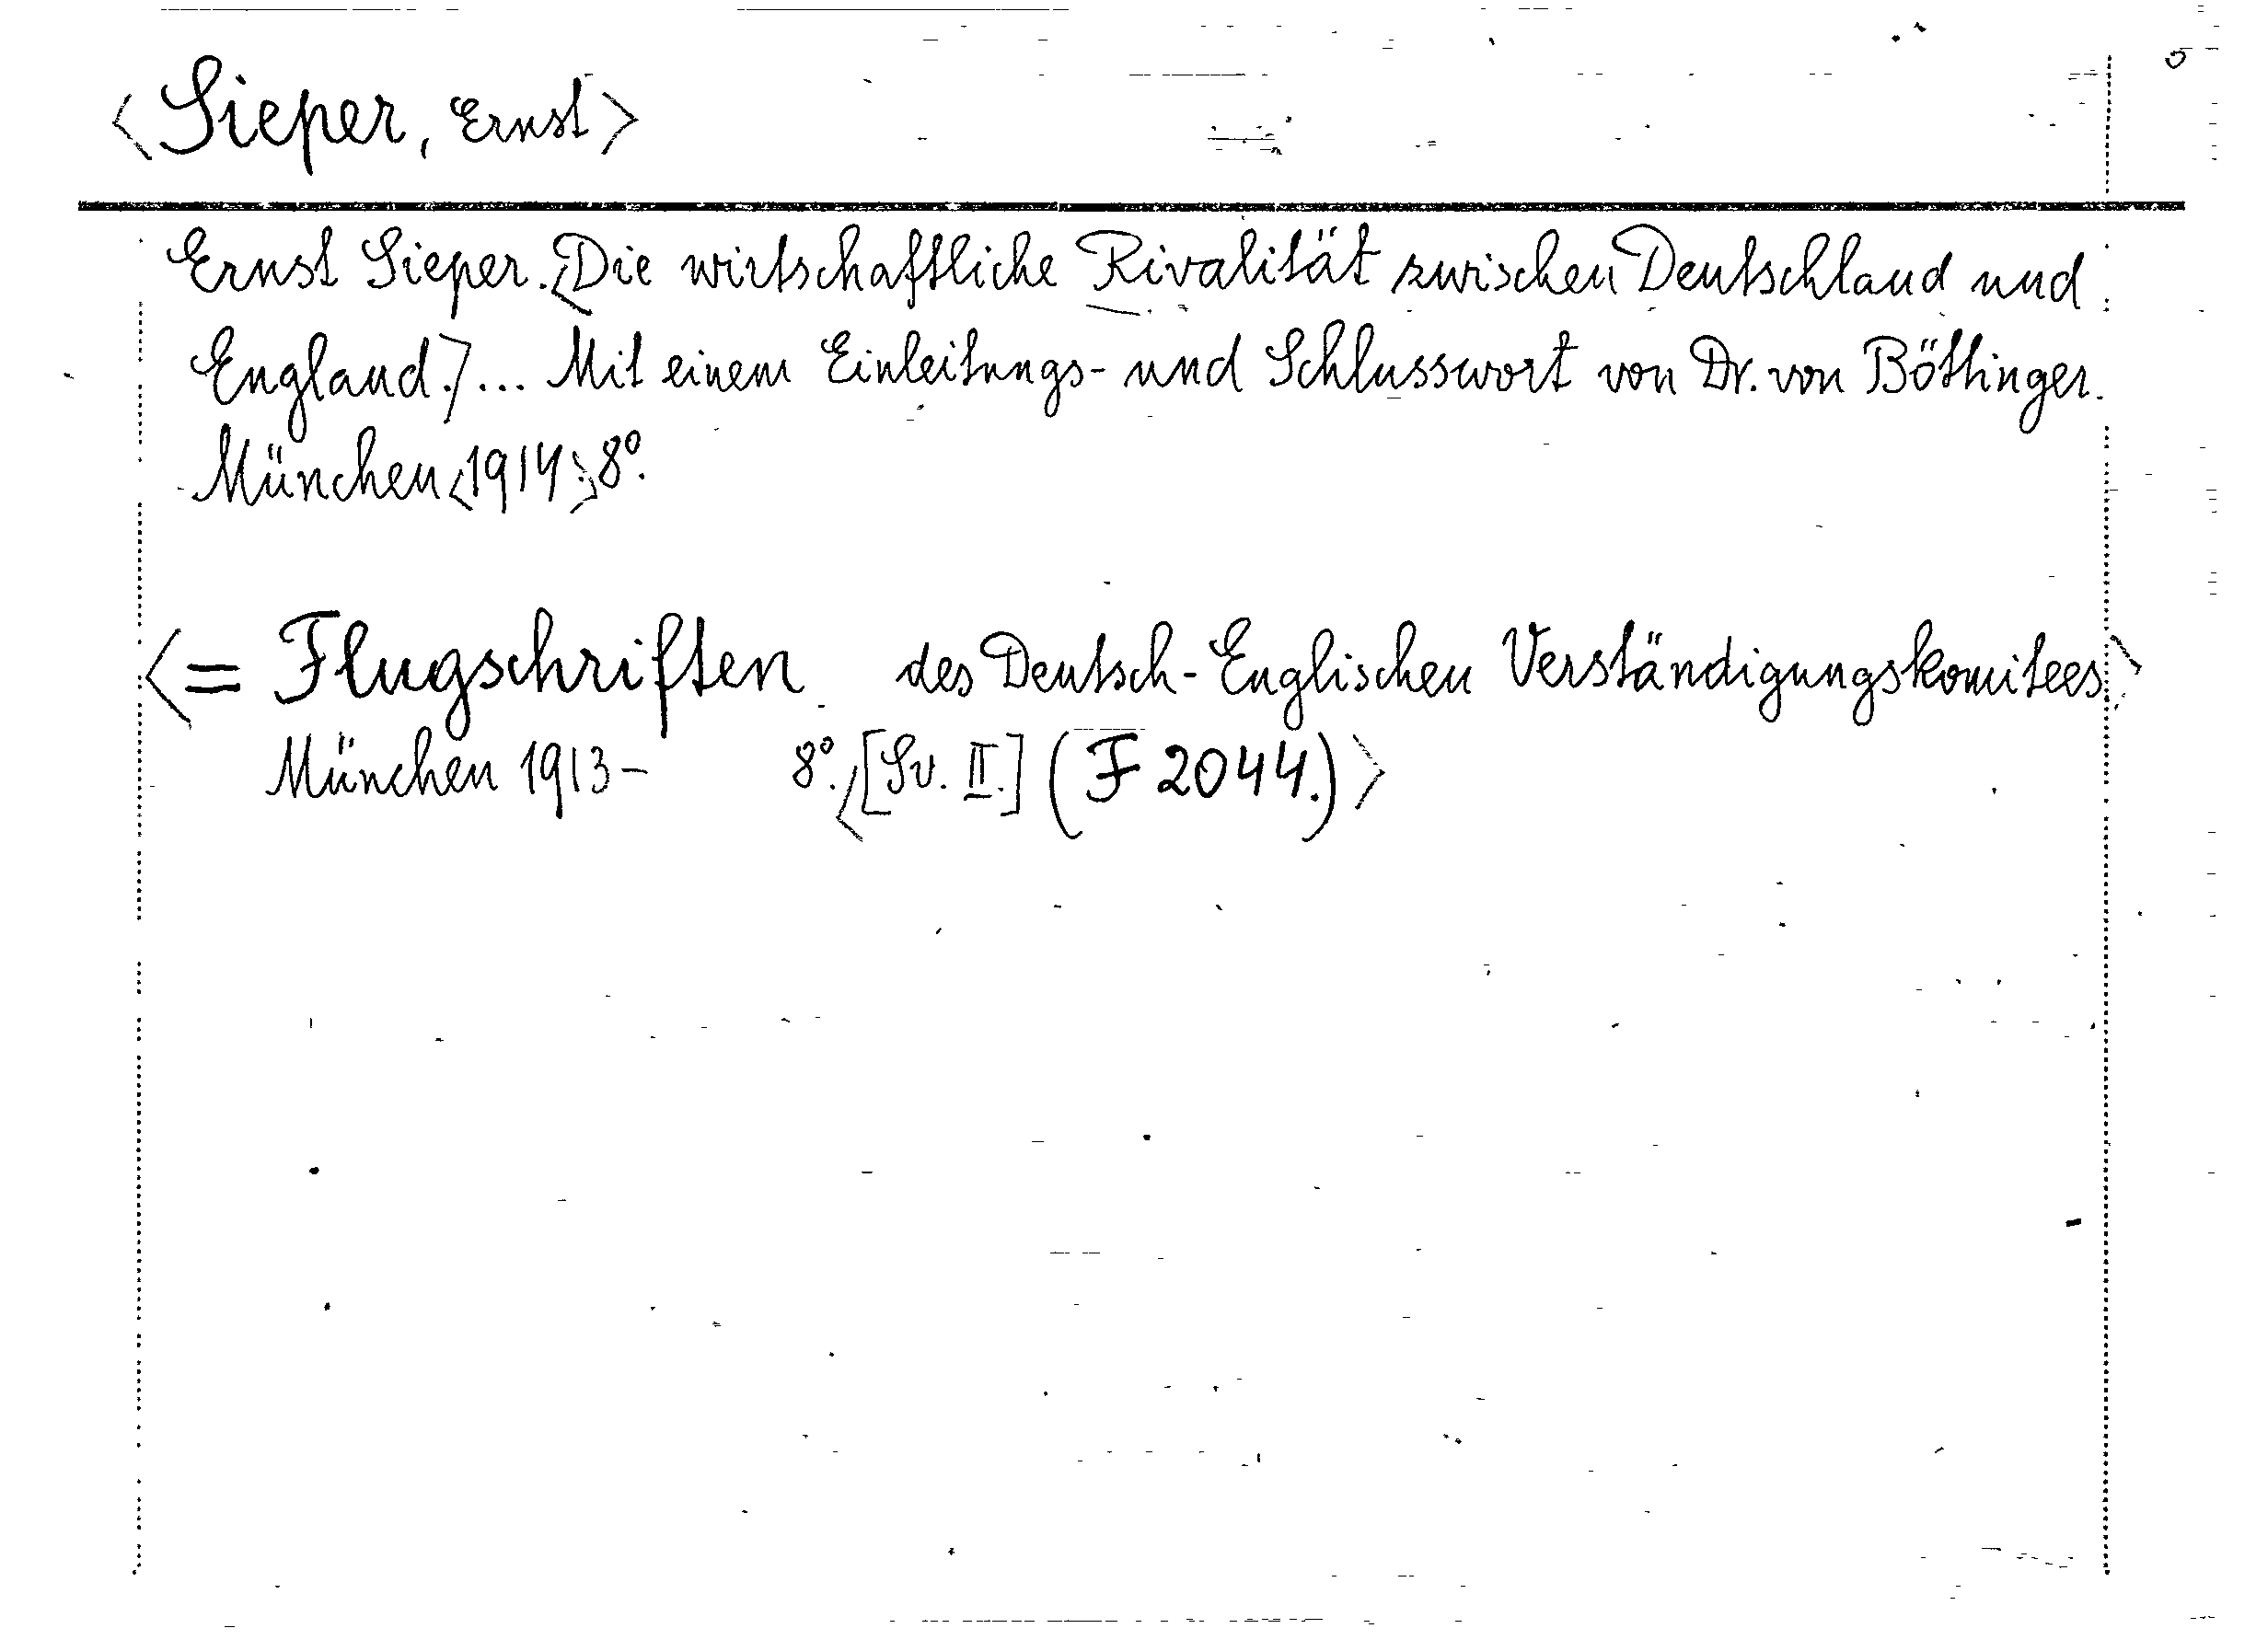 <Sieper, Ernst>
Ernst Sieper. <Die wirtschaftliche Rivalität zwischen Deutschland und
England.> ... Mit einem Einleitungs- und Schlusswort von Dr. von Böttinger.
München <1914.> 8°.
<= Flugschriften des Deutsch-Englischen Verständigungskomitees>
München 1913- 8°. <[Sv. II.] (F 2044.)>